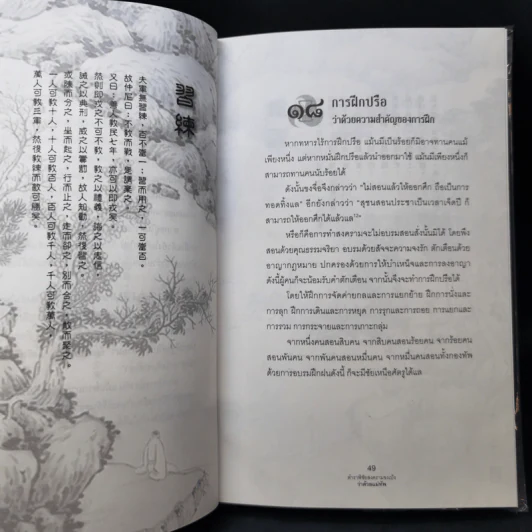 習練
夫軍無習練，百不當一；習而用之，一可當百。
故仲尼曰：不教而戰，是謂棄之。
又曰：善人教民七年，亦可以即戎矣。
然則即戎之不可不教，教之以禮義，誨之以忠信，
誡之以典刑，威之以賞罰，故人知勸，然後習之，
或陳而分之，坐而起之，行而止之，走而卻之，別而合之，散而聚之。
一人可教十人，十人可教百人，百人可教千人，千人可教萬人，
萬人可教三軍，然後教練而敵可勝矣。
๑๘ การฝึกปรือ
ว่าด้วยความสำคัญของการฝึก
หากทหารไร้การฝึกปรือ แม้นมีเป็นร้อยก็มิอาจทานคนแม้
เพียงหนึ่ง แต่หากหมั่นฝึกปรือแล้วนำออกมาใช้ แม้นมีเพียงหนึ่งก็
สามารถทานคนนับร้อยได้
ดังนั้นขงจื่อจึงกล่าวว่า "ไม่สอนแล้วให้ออกศึก ถือเป็นการ
ทอดทิ้งแล" อีกยังกล่าวว่า "สุชนสอนประชาเป็นเวลาเจ็ดปี ก็
สามารถให้ออกศึกได้แล"
หรือก็คือการทำสงครามจะไม่อบรมสั่งสอนนั้นมิได้ โดยพึง
สอนด้วยคุณธรรมจริยา อบรมด้วยสัจจะความจงรัก ตักเตือนด้วย
อาญากฎหมาย ปกครองด้วยการให้บำเหน็จและการลงอาญา
ดังนี้ผู้คนก็จะน้อมรับคำตักเตือน จากนั้นจึงจะทำการฝึกปรือได้
โดยให้ฝึกการจัดค่ายกลและการแยกย้าย ฝึกการนั่งและ
การลุก ฝึกการเดินและการหยุด การรุกและการถอย การแยกและ
การรวม การกระจายและการเกาะกลุ่ม
จากหนึ่งคนสอนสิบคน จากสิบคนสอนร้อยคน จากร้อยคน
สอนพันคน จากพันคนสอนหมื่นคน จากหมื่นคนสอนทั้งกองทัพ
ด้วยการอบรมฝึกฝนดังนี้ ก็จะมีชัยเหนือศัตรูได้แล
49
ตำราพิชัยสงครามขงเบ้ง
ว่าด้วยแม่ทัพ